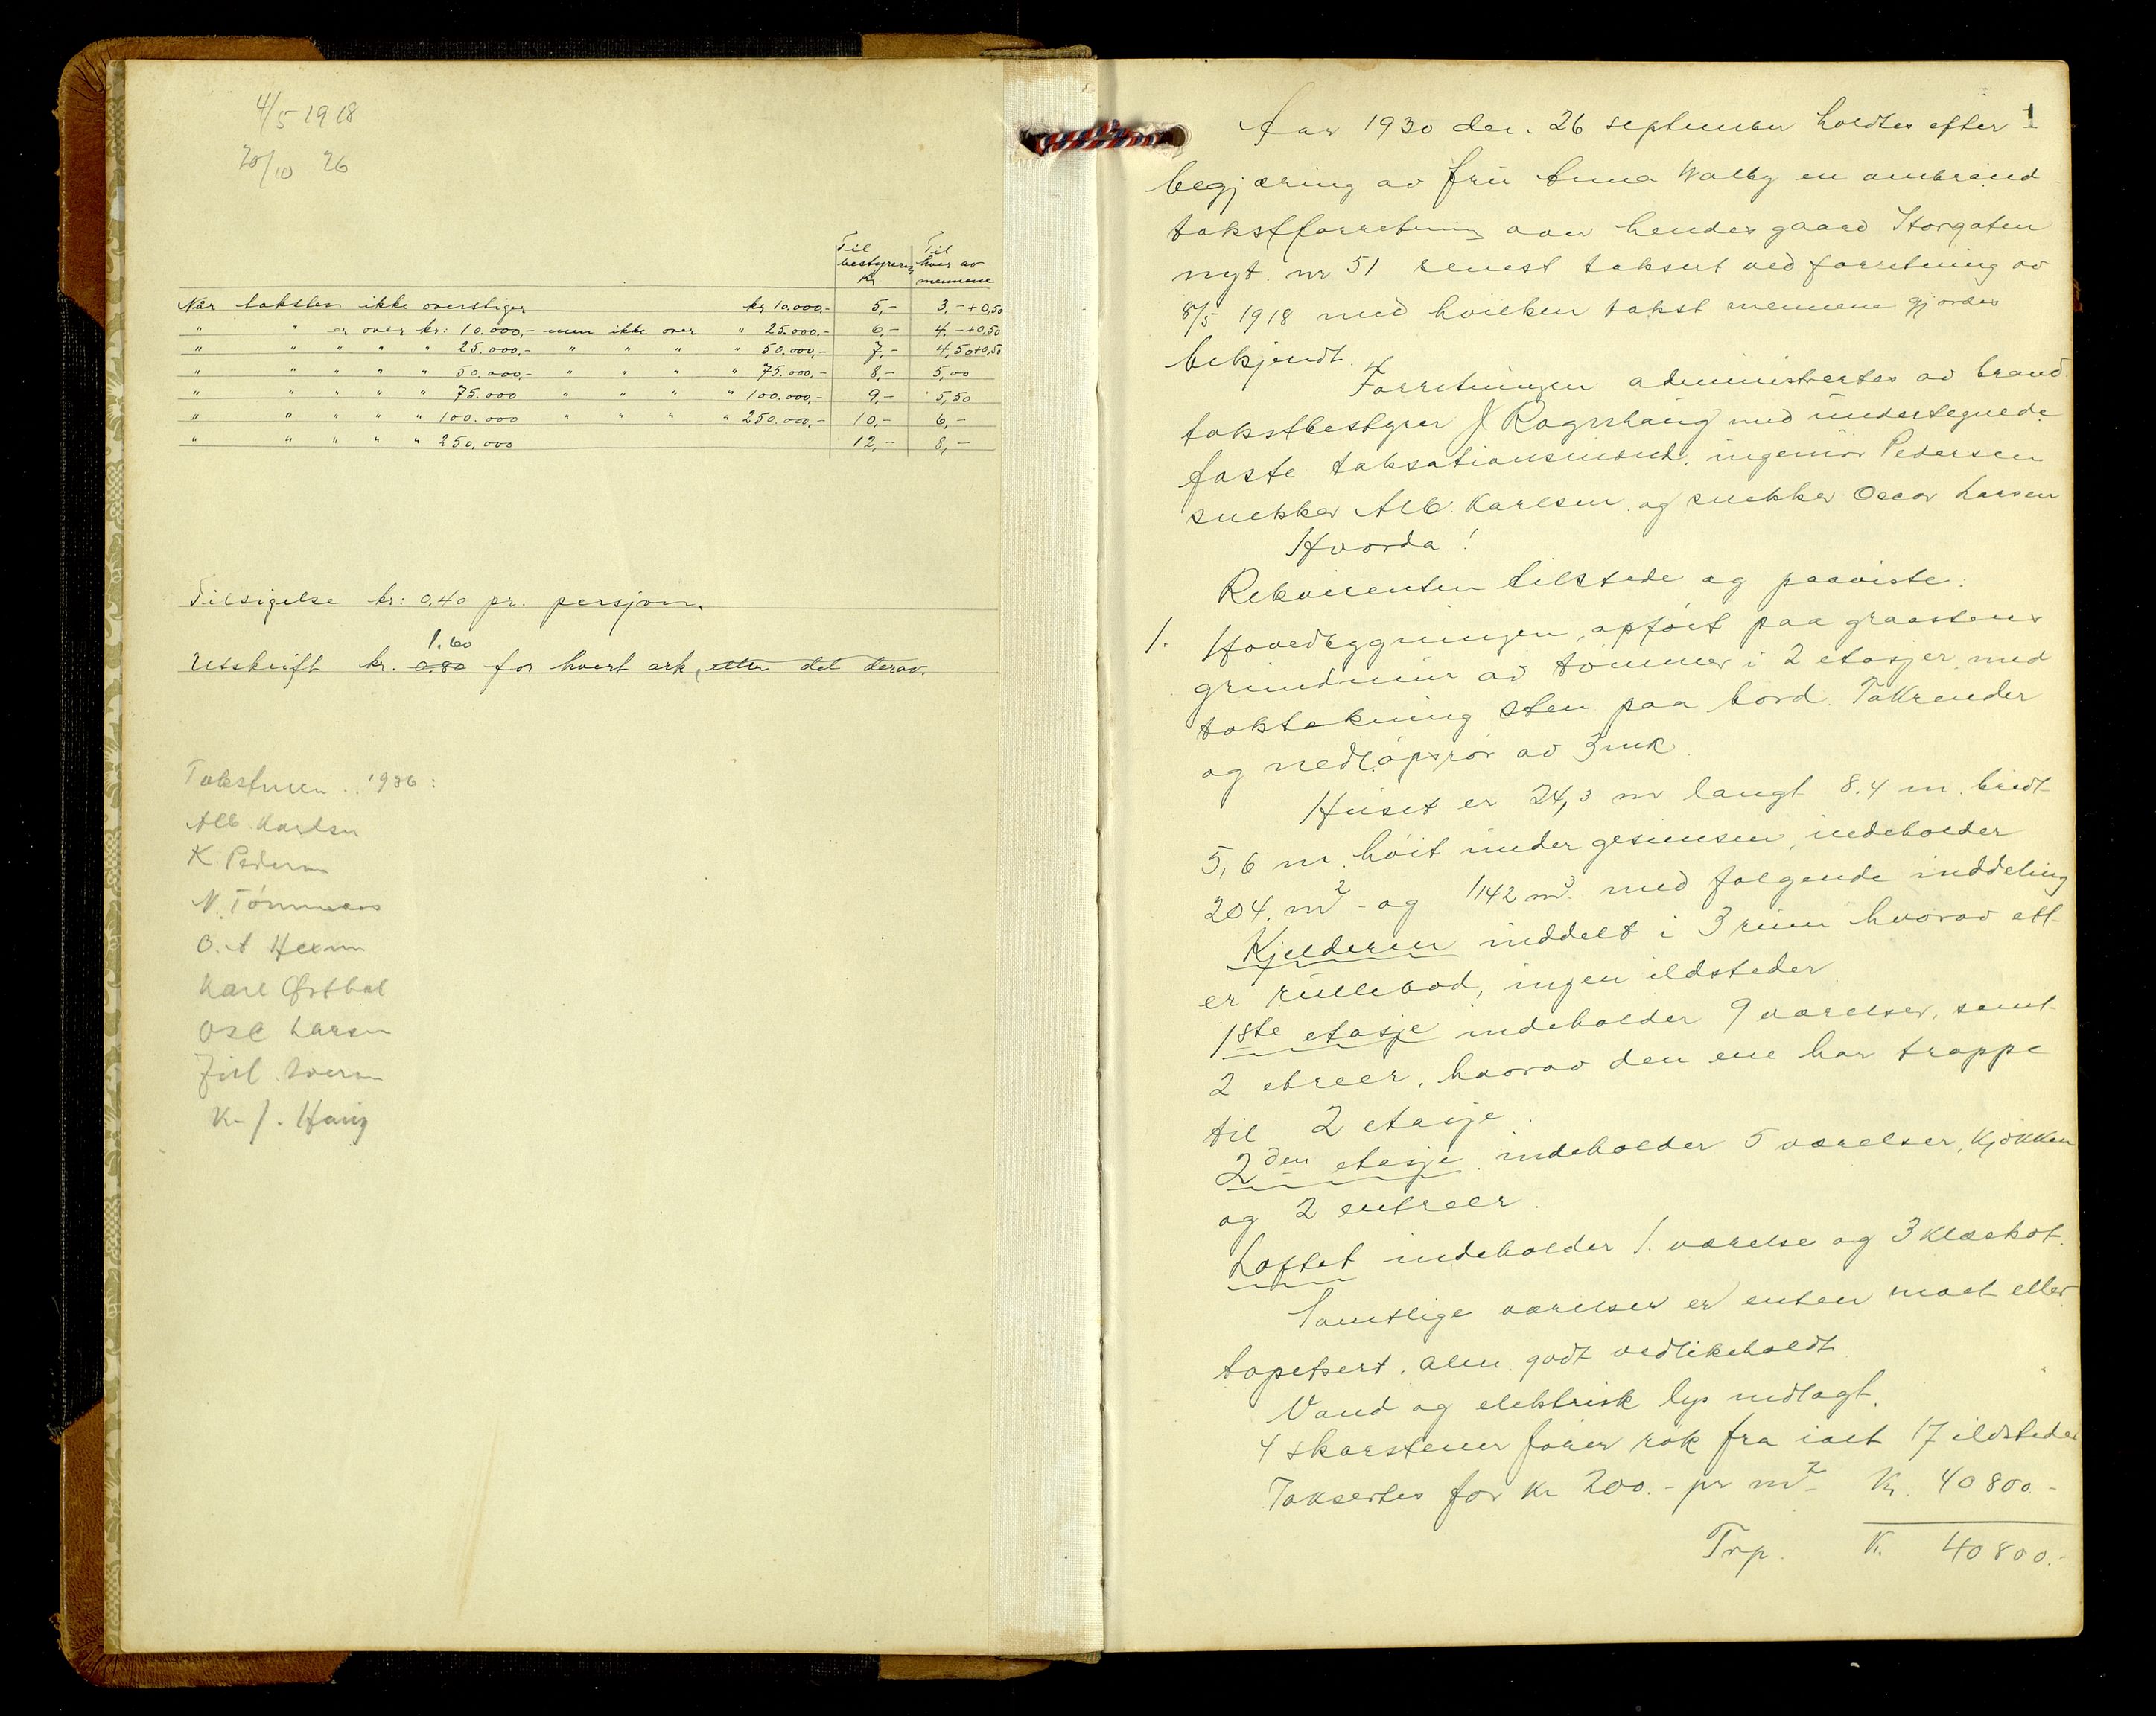 4/5 1918
20/10 26
Til bestyreren Kr
Til hver av mennene
Når taksten ikke overstiger kr 10.000,- 5,- 3,- +0,50
" " er over kr: 10.000,- men ikke over " 25.000.- 6,- 4,- +0,50
" " " " " 25.000,- " " " " 50.000,- 7,- 4,50+0,50
" " " " " 50.000,- " " " " 75.000,- 8,- 5,00
" " " " " 75.000 " " " " 100.000,- 9,- 5,50
" " " " " 100.000 " " " " 250.000,- 10,- 6,-
" " " " " 250.000 12,- 8,-
Tilsigelse kr: 0.40 pr. persjon.
1.60
Utskrift kr. 0.80 for hvert ark, eller del derav.
Takstmen 1936:
Alb. Karlsen
K. Pedersen
N. Tönnnes
O. A
Karl Østbal
Osc Larsen
K. J. Haug
1
Aar 1930 den 26 september holdtes efter
begjæring av fru Anna Walby en ombrand
takstforretning over hendes gaard Storgaten
nyt. nr 51 senest taksert ved forretning av
8/5 1918 med hvilken takst mennene gjordes
bekjendt.
Forretningen administrertes av brand
takstbestyrer J Rognhaug med undertegnede
faste taksationsmænd, ingeniør Pedersen
snekker Alb. Karlsen og snekker Oscar Larsen
Hvorda!
Rekvirenten tilstede og paaviste:
1. Hovedbygningen, opført paa graastens
grundmur av tömmer i 2 etasjer med
taktekning sten paa bord. Takrender
og nedlöpsrör av zink.
Huset er 24,3 m langt 8.4 m. bredt
5,6 m. höit under gesimsen, indeholder
204. m2 - og 1142 m3. med følgende inddeling
Kjelderen inddelt i 3 rum hvorav ett
er rullebod, ingen ildsteder.
1ste etasje indeholder 9 værelser, samt
2 etreer, hvorav den ene har trappe
til 2 etasje.
2den etasje indeholder 5 værelser, kjökken
og 2 entreer.
Loftet indeholder 1. værelse og 3 klæskot.
Samtlige værelser er enten malt eller
tapetsert, alm. godt vedlikeholdt.
Vand og elektrisk lys indlagt.
4 skorstener förer røk fra ialt 17 ildsteder
Taksertes for kr 200.- pr m2 - Kr. 40800.-
Trp. Kr. 40800.-